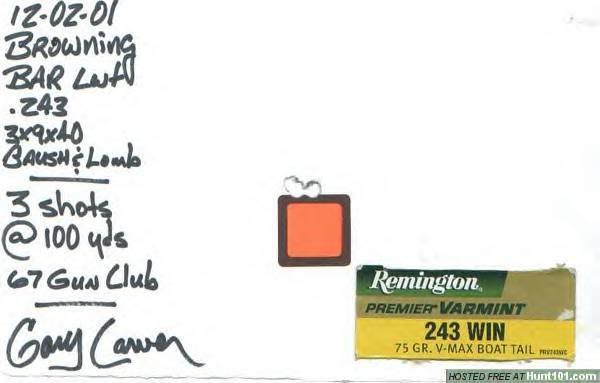 12-02-01
Browning
BAR Lwt
.243
3x9x40
Baush & Lomb
3 shots
@ 100 yds
67 Gun Club
Gary Carver
Remington
PREMIER VARMINT
243 WIN
75 GR. V-MAX BOAT TAIL
HOSTED FREE AT Hunt101.com